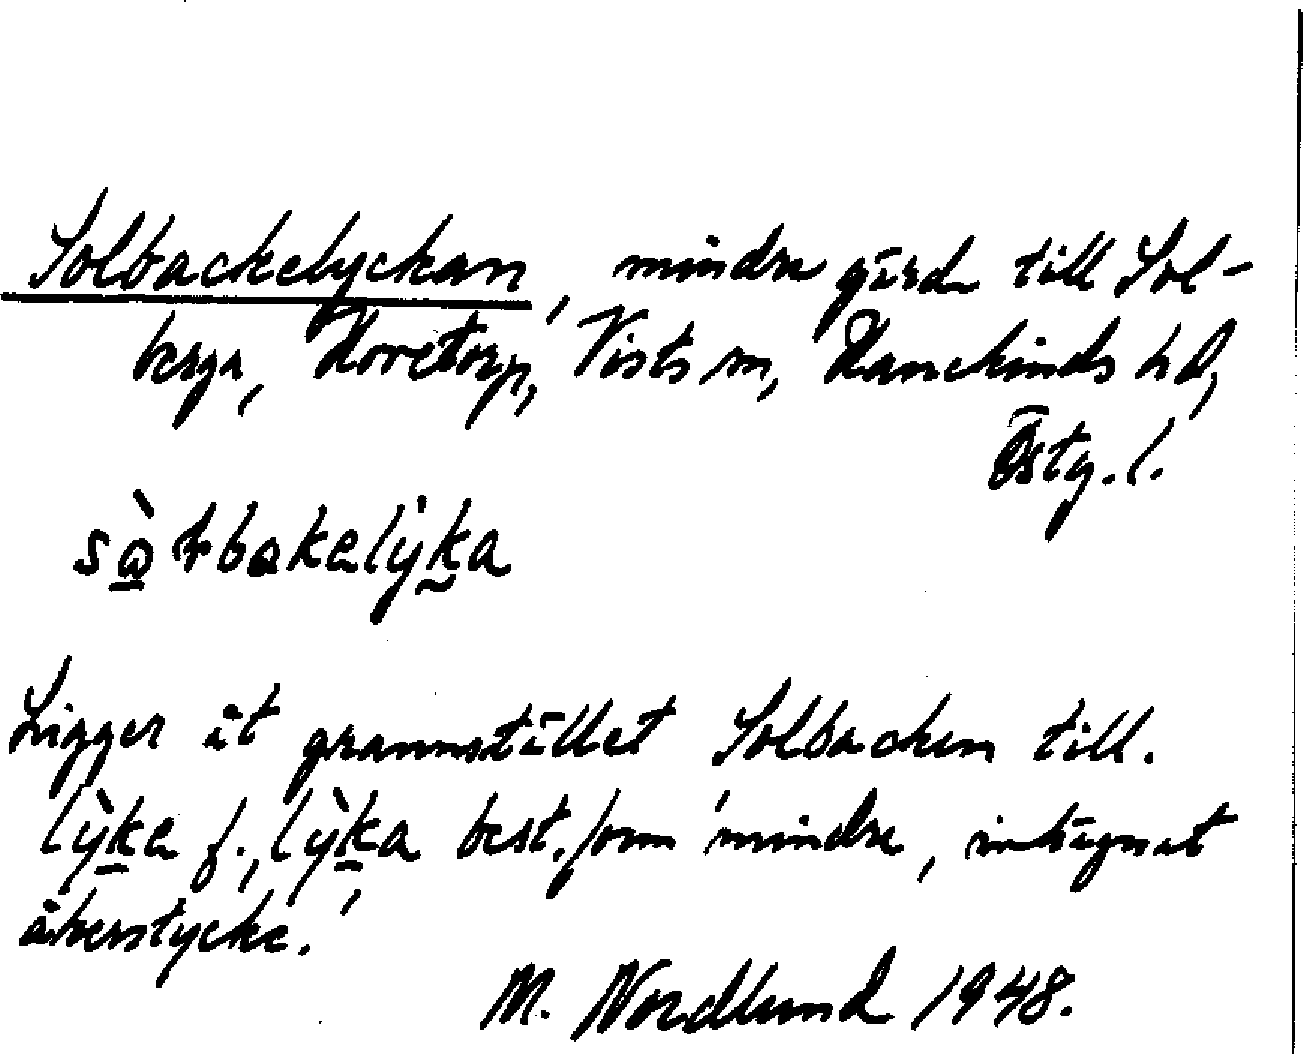 Solbackelyckan, mindre gärde till Sol-
berga, Hovetorp, Vists sn, Hanekinds hd,
Östg. l.
sὼɫbakelỳka
Ligger åt grannstället Solbacken till.
lỳke f., lỳka best. form 'mindre, inhägnat
åkerstycke.'
M. Nordlund 1948.